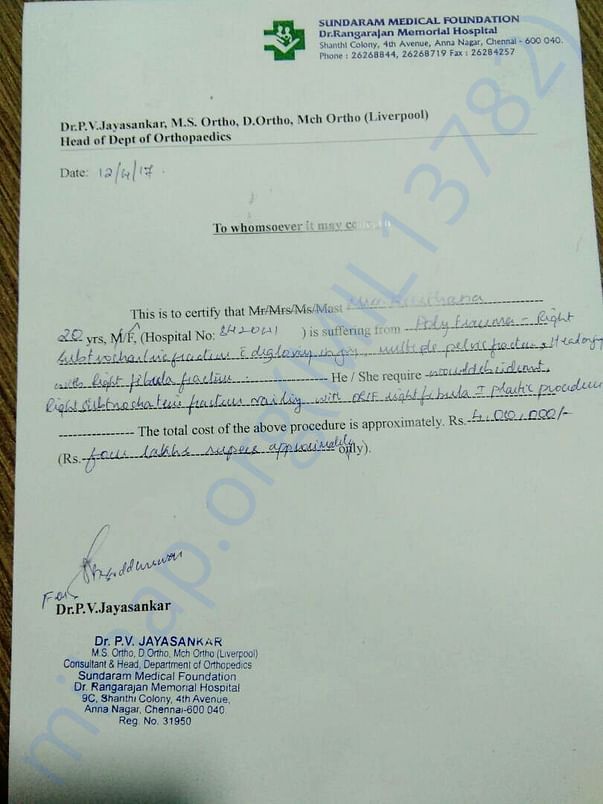 SUNDARAM MEDICAL FOUNDATION
Dr.Rangarajan Memorial Hospital
Shanthi Colony, 4th Avenue, Anna Nagar, Chennai - 600 040.
Phone : 26268844, 26268719 Fax : 26284257
Dr.P.V.Jayasankar, M.S. Ortho, D.Ortho, Mch Ortho (Liverpool)
Head of Dept of Orthopaedics
Date: 12/4/17.
To whomsoever it may concern
This is to certify that Mr/Mrs/Ms/Mast
20 yrs, M/F, (Hospital No: 342041 ) is suffering from Poly trauma - Right
Subtrochanteric fracture c degloving injury, multiple pelvic fracture, Head injury
with Right fibula fracture. He / She require wound debridement,
Right subtrochanteric fracture nailing with ORIF right fibula I plastic procedure
The total cost of the above procedure is approximately. Rs. 4,00,000/-
(Rs. four lakhs rupees approximately only).
For
Dr.P.V.Jayasankar
Dr. P.V. JAYASANKAR
M.S. Ortho, D.Ortho, Mch Ortho (Liverpool)
Consultant & Head, Department of Orthopedics
Sundaram Medical Foundation
Dr. Rangarajan Memorial Hospital
9C, Shanthi Colony, 4th Avenue,
Anna Nagar, Chennai-600 040
Reg. No. 31950